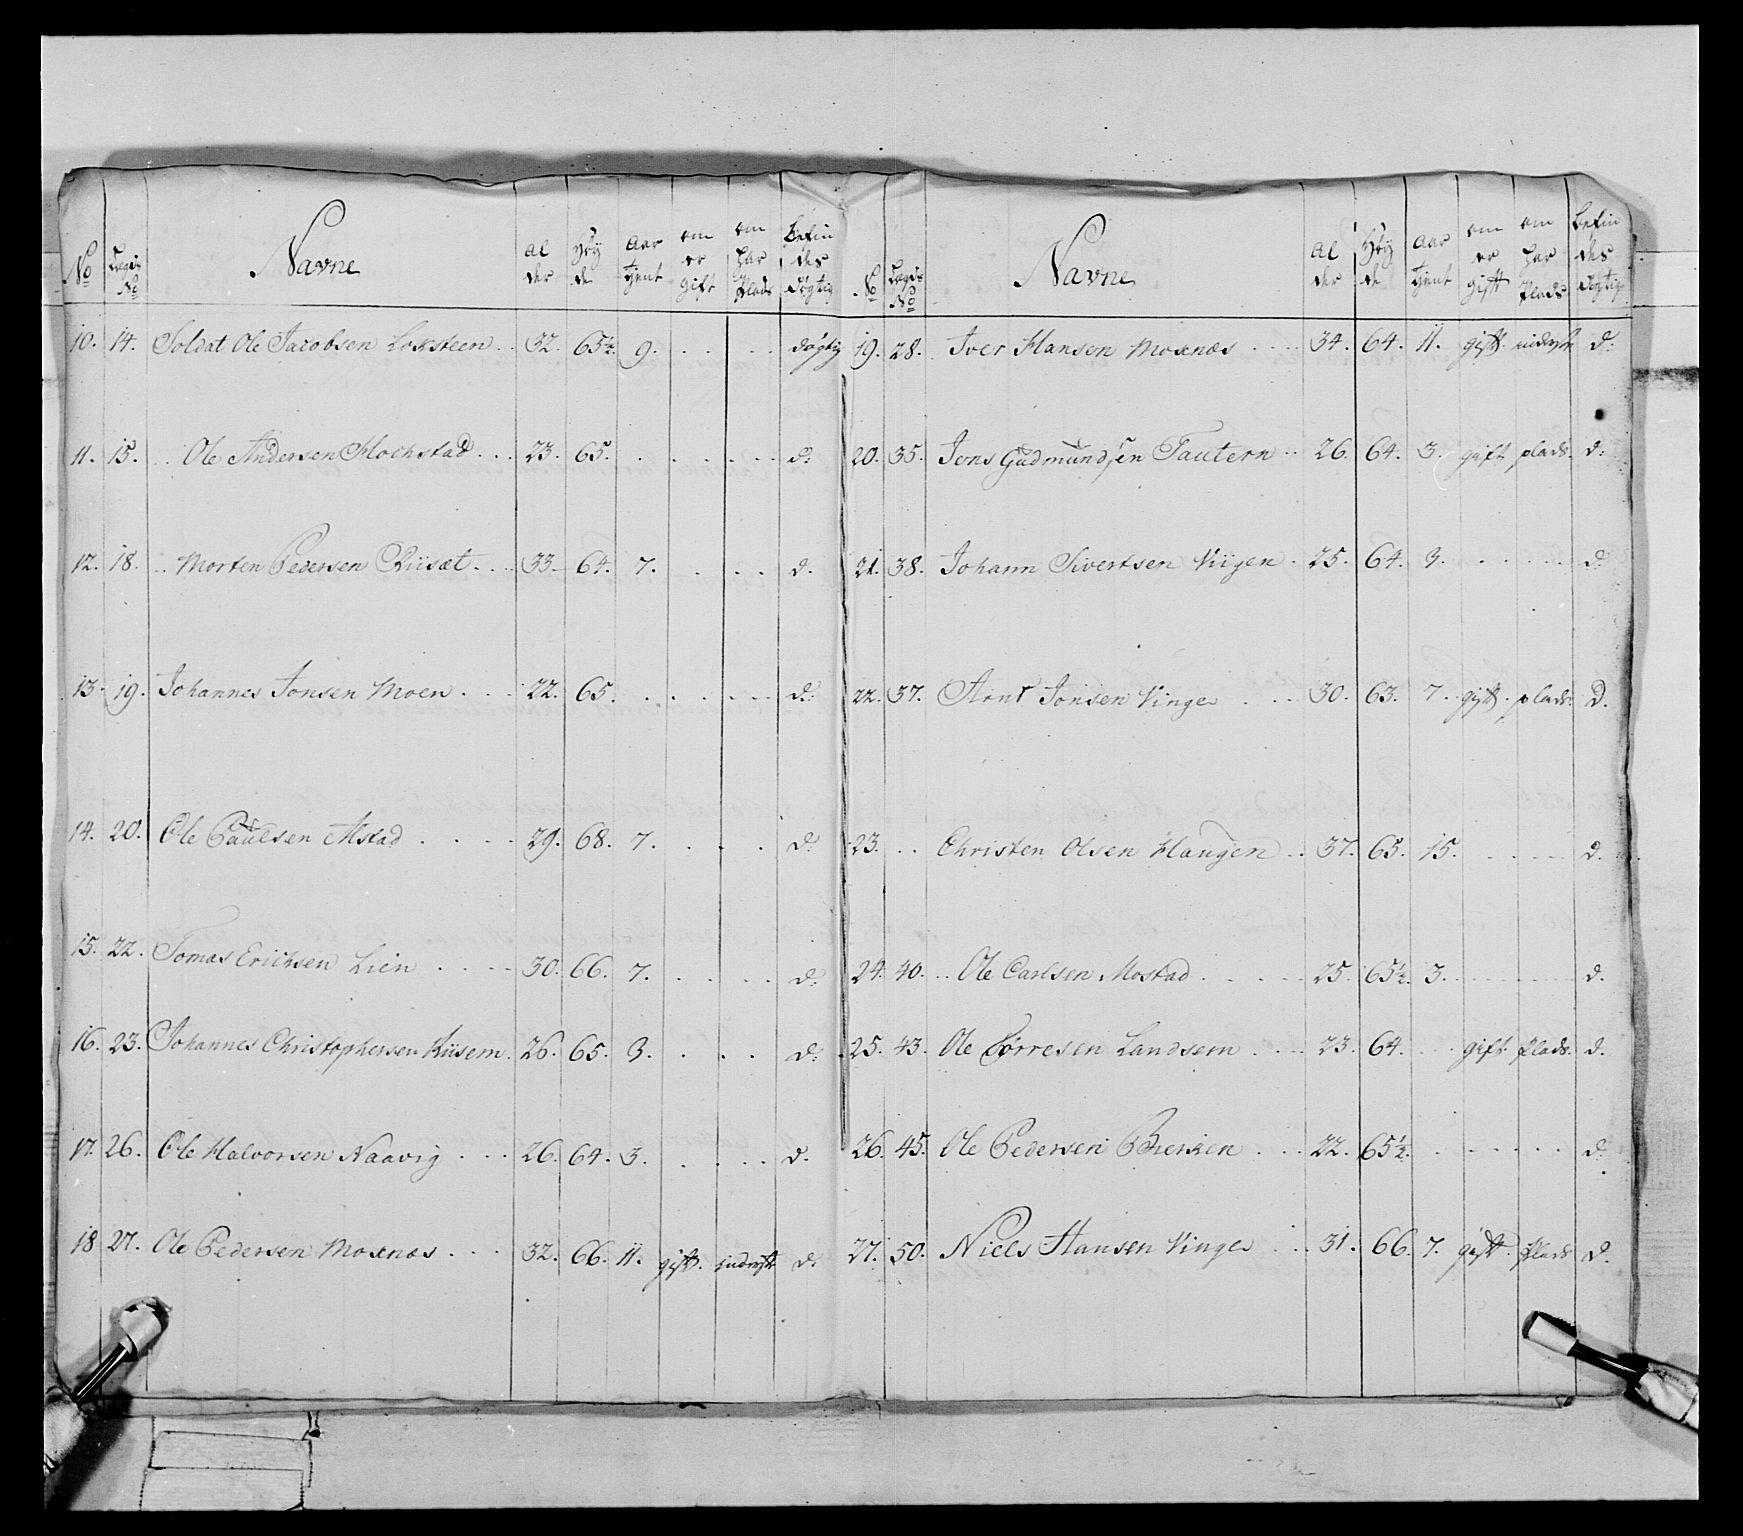 No Lægds No Navne Al der Høy de Aar tjent om er gift om har Plads befin des døgtig
10. 14. Soldat Ole Jacobsen Loksteen . . 32. 65½. 9. . . . . døgtig
11. 15. . . Ole Andersen Mochstad . . . 23. 65. . . . . . d:
12. 18. . . Morten Pedersen Riisæt . . . 33. 64. 7. . . . . d.
13. 19. Johannes Jonsen Moen . . . 22. 65. . . . . . d:
14. 20. Ole Paulsen Alstad . . . . 29. 68. 7. . . . . d:
15. 22. Tomas Erichsen Lien . . . . 30. 66. 7. . . . . d:
16. 23. Johannes Christophersen Kiisem. 26. 65. 3. . . . d:
17. 26. Ole Halvorsen Naavig . . . 26. 64. 3. . . . . . d.
18 27. Ole Pedersen Moxnæs . . . 32. 66. 11. gift. inderst d:
No Lægds No Navne Al der Høy de Aar tjent om er gift om har Plads befin des døgtig
19. 28. Iver Hansen Moxnæs . . . 34. 64. 11. gift. d:
20. 35. Jens Gudmundsen Tautern . . 26. 64. 3. gift plads. d:
21. 38. Johann Sivertsen Viigen . 25. 64. 3. . . . . . d:
22. 37. Arnt Jonsen Vinge . . . 30. 63. 7. gift. plads. d.
23. . . Christen Olsen Haugen . . 37. 65. 15. . . . . d.
24. 40. . . Ole Carlsen Mostad . . . . . 25. 65½. 3. . . . . d.
25. 43. Ole Torresen Landsem . . . 23. 64. . . gift. Plads. d.
26. 45. Ole Pedersen . . . 22. 65½. . . . . . . d:
27. 50. Niels Hansen Vinge . . . 31. 66. 7. gift. Plads d.